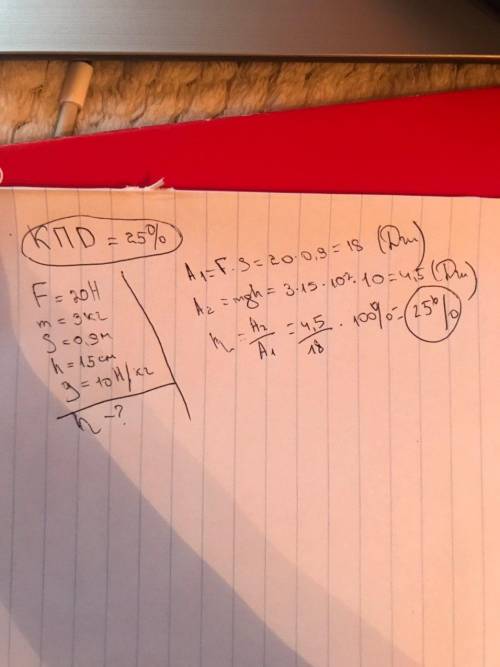 КПД = 25%
F = 20Н
m = 3кг
S = 0,9м
h = 15см
g = 10Н/кг
η - ?
A₁ = F · S = 20 · 0,9 = 18 (Дж)
A₂ = mgh = 3 · 15 · 10² · 10 = 4,5 (Дж)
η = A₂/A₁ = 4,5/18 · 100% = 25%